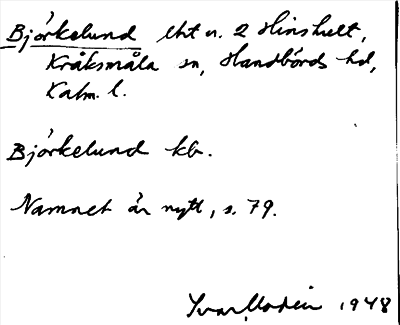 Björkelund lht u. 2 Hinshult,
Kråksmåla sn, Handbörds hd,
Kalm. l.
Björkelund kb.
Namnet är nytt, s. 79.
Ivar Modéer 1948